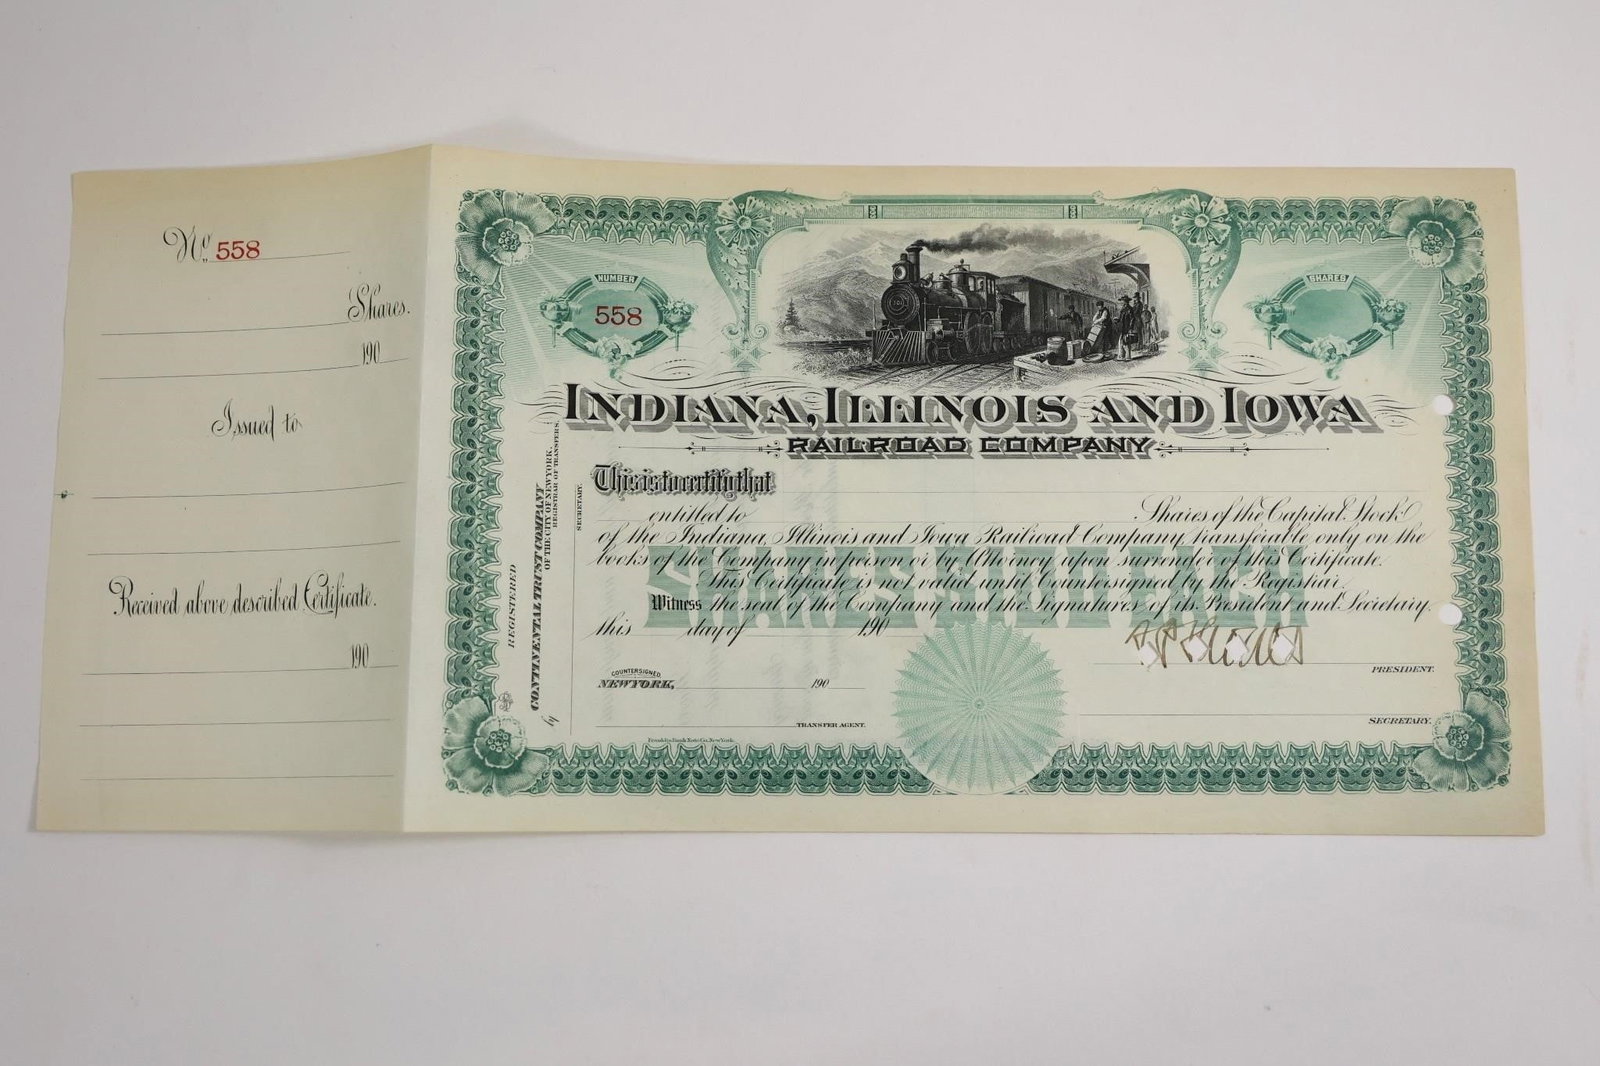 No. 558
Shares.
190
Issued to
Received above described Certificate.
190
NUMBER
558
SHARES
INDIANA, ILLINOIS AND IOWA
RAILROAD COMPANY
This is to certify that
entitled to Shares of the Capital Stock
of the Indiana, Illinois and Iowa Railroad Company, transferable only on the
books of the Company in person or by Attorney upon surrender of this Certificate.
This Certificate is not valid until Countersigned by the Registrar.
Witness the seal of the Company and the Signatures of its President and Secretary,
this day of 190
SHARES $100 EACH
PRESIDENT.
COUNTERSIGNED
NEW YORK, 190
TRANSFER AGENT.
SECRETARY.
Franklin Bank Note Co. New York.
REGISTERED
CONTINENTAL TRUST COMPANY
OF THE CITY OF NEW YORK.
REGISTRAR OF TRANSFERS.
by
SECRETARY.